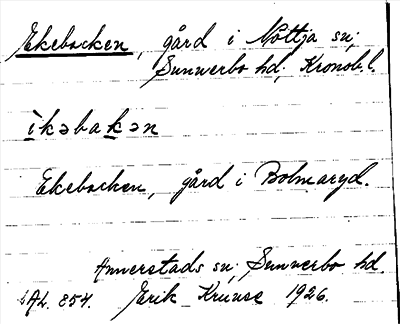 Ekebacken, gård i Nöttja sn;
Sunnerbo hd; Kronob. l.
ìkəbakən
Ekebacken, gård i Bolmaryd.
Annerstads sn; Sunnerbo hd.
ULA 854. Erik Kruuse 1926.